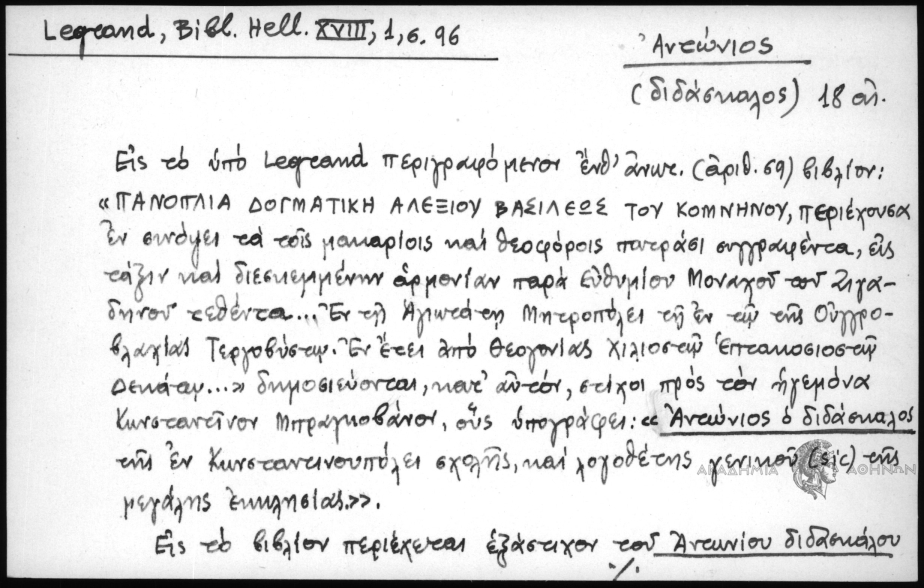 Legrand, Bibl. Hell. XVIII, 1, σ. 96
Ἀντώνιος
(διδάσκαλος) 18 αἰ.
Εἰς τὸ ὑπὸ Legrand περιγραφόμενον ἔνθ' ἀνωτ. (ἀριθ. 69) βιβλίον:
«ΠΑΝΟΠΛΙΑ ΔΟΓΜΑΤΙΚΗ ΑΛΕΞΙΟΥ ΒΑΣΙΛΕΩΣ ΤΟΥ ΚΟΜΝΗΝΟΥ, περιέχουσα
ἐν συνόψει τὰ τοῖς μακαρίοις καὶ θεοφόροις πατράσι συγγραφέντα, εἰς
τάξιν καὶ διεσκεμμένην ἁρμονίαν παρὰ Εὐθυμίου Μοναχοῦ τοῦ Ζιγα-
δηνοῦ τεθέντα... Ἐν τῇ Ἁγιωτάτῃ Μητροπόλει τῇ ἐν τῷ τῆς Οὐγγρο-
βλαχίας Τεργοβύστῳ. Ἐν ἔτει ἀπὸ θεογονίας χιλιοστῷ ἑπτακοσιοστῷ
δεκάτῳ...» δημοσιεύονται, κατ' αὐτόν, στίχοι πρὸς τὸν ἡγεμόνα
Κωνσταντῖνον Μπραγκοβάνον, οὓς ὑπογράφει: «Ἀντώνιος ὁ διδάσκαλος
τῆς ἐν Κωνσταντινουπόλει σχολῆς, καὶ λογοθέτης γενικοῦ (sic) τῆς
ΑΚΑΔΗΜΙΑ ΑΘΗΝΩΝ
μεγάλης ἐκκλησίας.».
Εἰς τὸ βιβλίον περιέχεται ἑξάστιχον τοῦ Ἀντωνίου διδασκάλου
./.